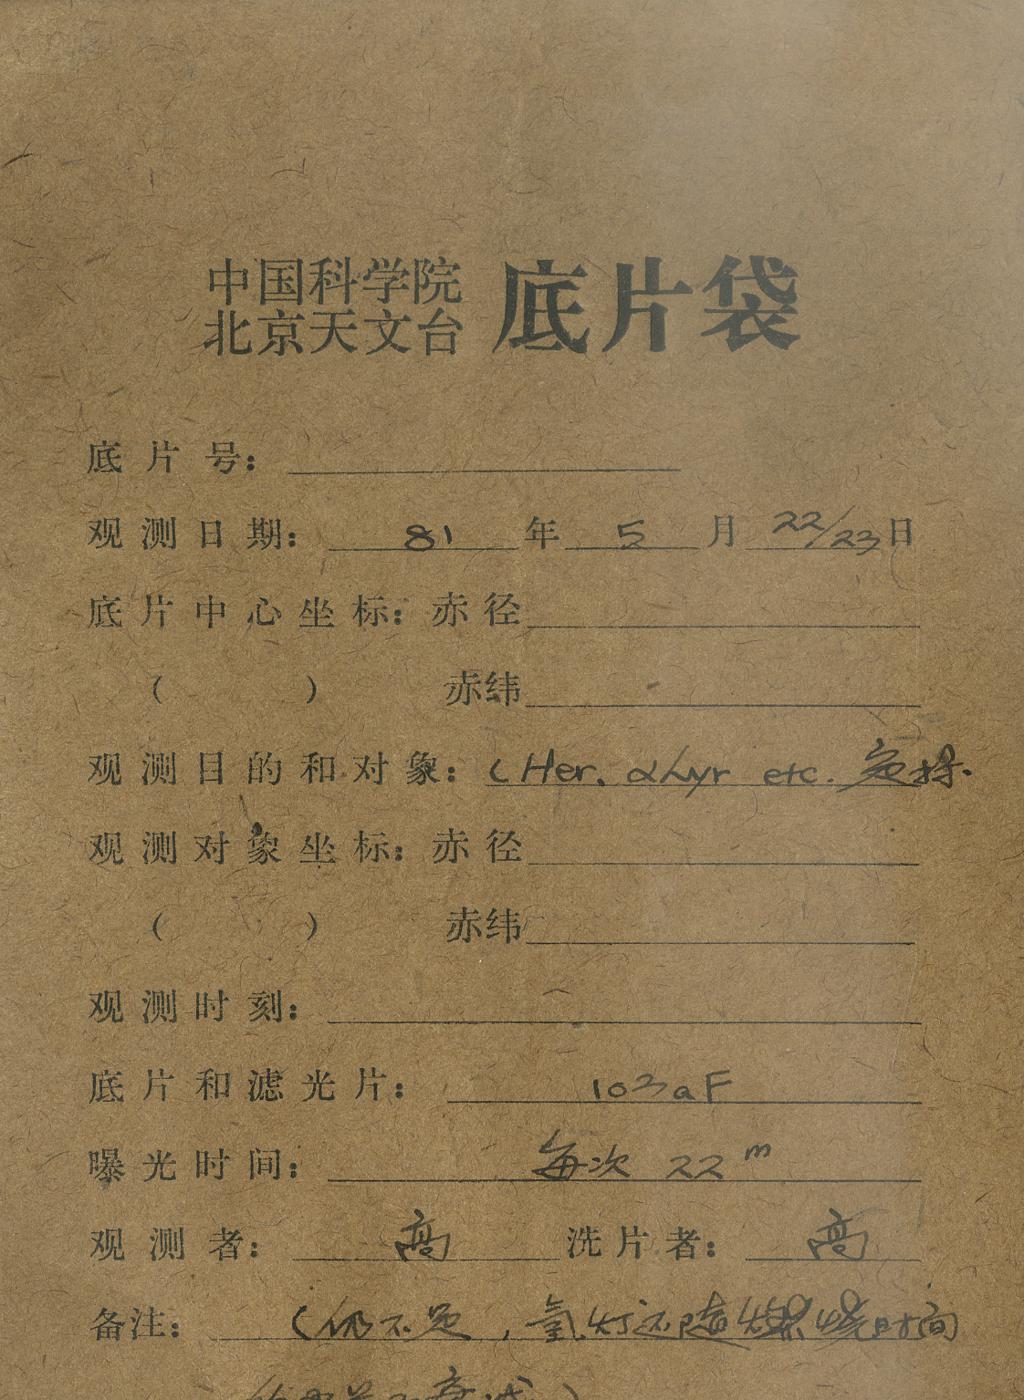 中国科学院
北京天文台 底片袋
底片号：
观测日期： 81 年 5 月 22/23 日
底片中心坐标：赤径
（ ） 赤纬
观测目的和对象： (Her. αLyr etc. 定标.
观测对象坐标：赤径
（ ） 赤纬
观测时刻：
底片和滤光片： 103aF
曝光时间： 每次 22m
观测者： 高 洗片者： 高
备注： (仍不足，氢灯还随燃烧时间
衰减)